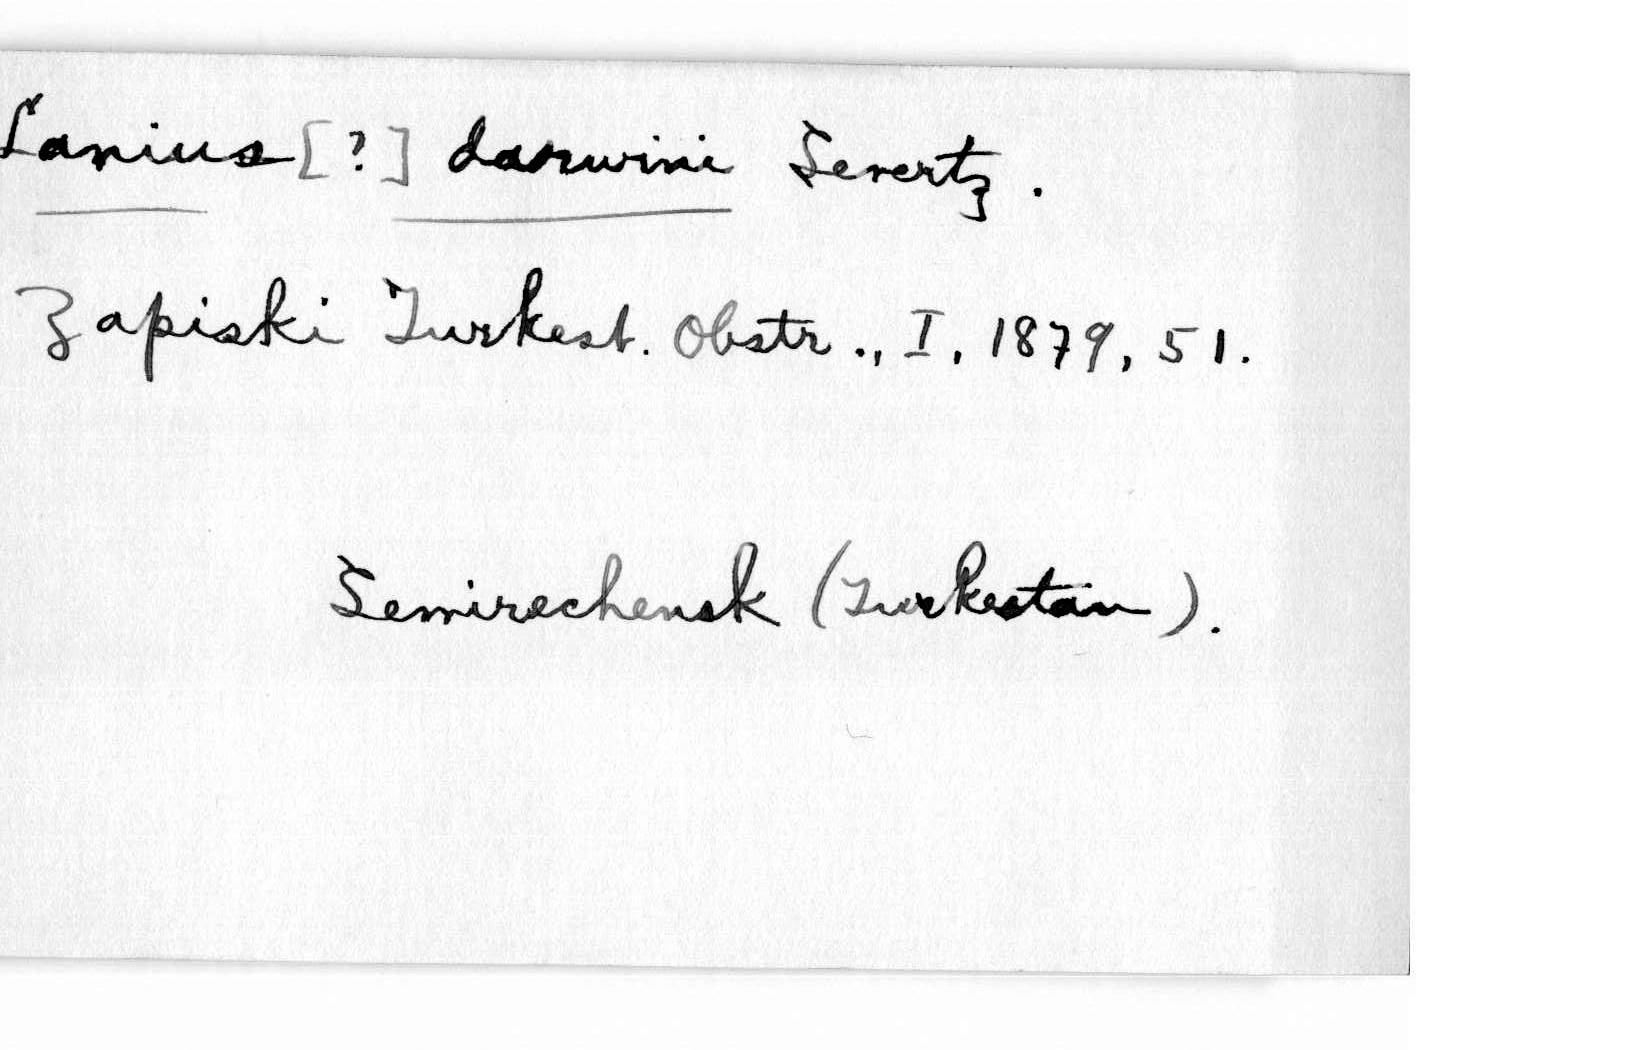 Lanius [?] darwini Severtz.
Zapiski Turkest. Obstr., I, 1879, 51.
Semirechensk (Turkestan).